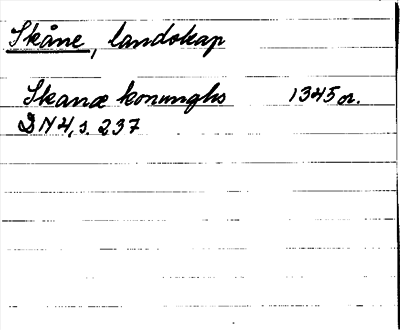 Skåne, landskap
Skanæ konunghs 1345 or.
DN 4, s. 237